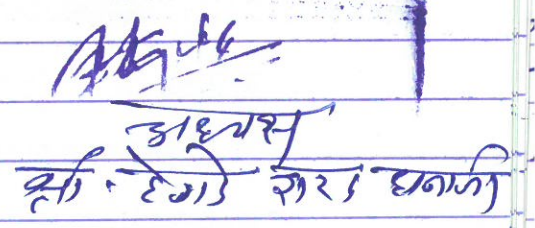 अध्यक्ष
श्री. हेगडे शरद धनाजी